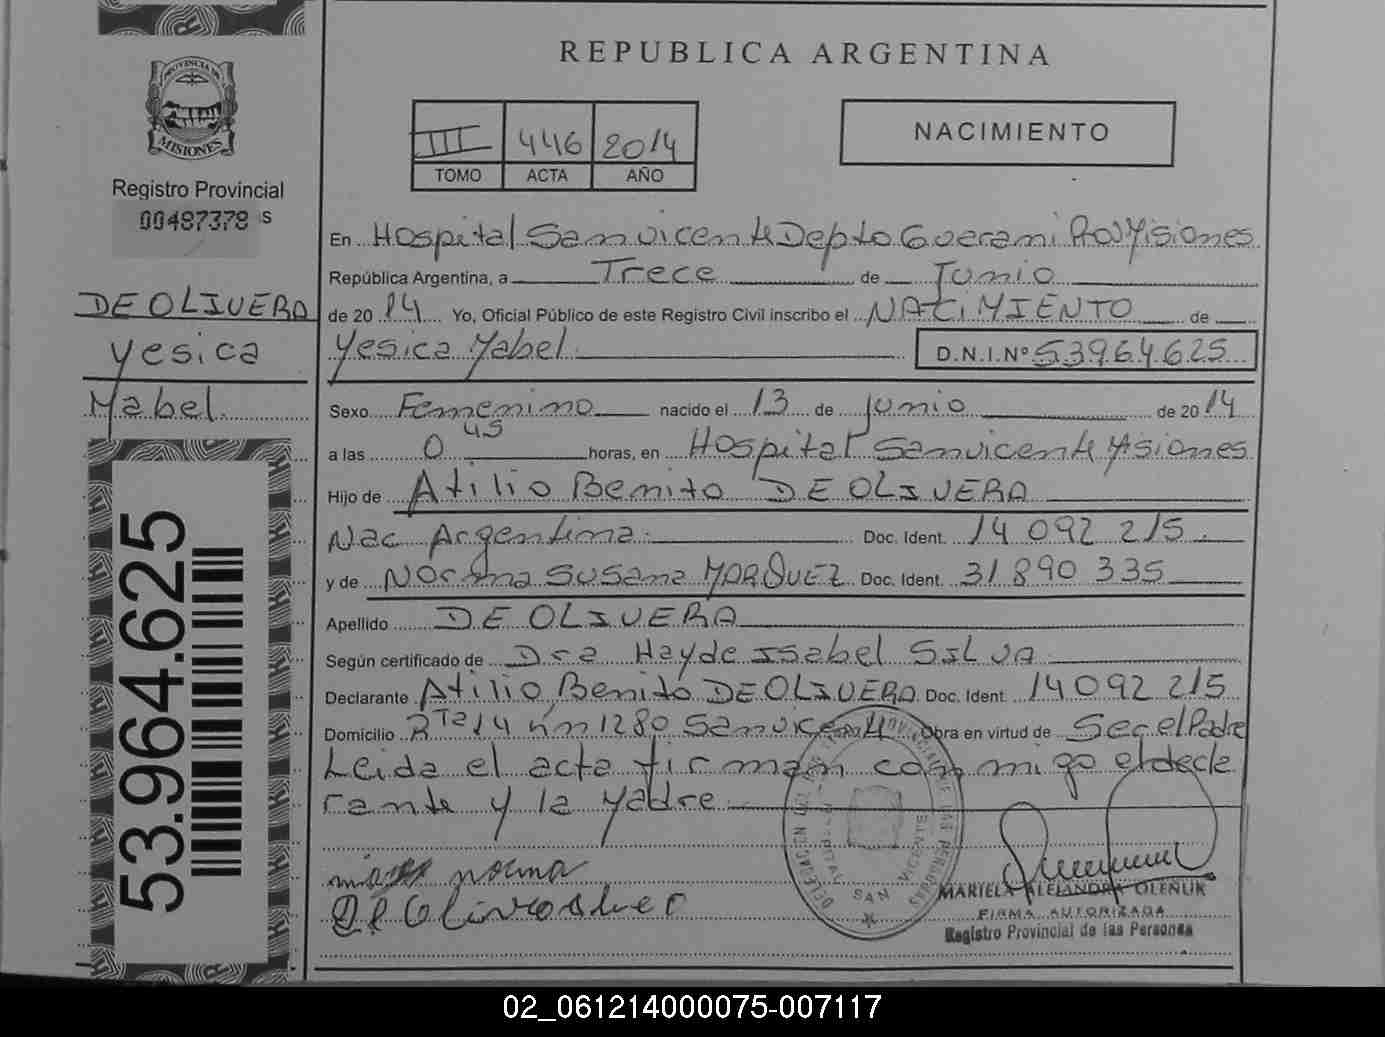 REPUBLICA ARGENTINA
PROVINCIA DE
MISIONES
Registro Provincial
00487378 S
III 446 2014
TOMO ACTA AÑO
NACIMIENTO
DE OLIVERA
Yesica
Mabel
53.964.625
En Hospital San vicente Depto Guarani Prov Misiones
República Argentina, a Trece de Junio
de 2014 Yo, Oficial Público de este Registro Civil inscribo el NACIMIENTO de
Yesica Mabel D.N.I.Nº 53964625
Sexo Femenino nacido el 13 de junio de 2014
a las 0 45 horas, en Hospital San vicente Misiones
Hijo de Atilio Benito DE OLIVERA
Nac Argentina Doc. Ident. 14 092 215
y de Norma Susana MARQUEZ Doc. Ident. 31 890 335
Apellido DE OLIVERA
Según certificado de Dra Hayde Isabel SILVA
Declarante Atilio Benito DE OLIVERA Doc. Ident. 14 092 215
Domicilio Rta 14 km 1280 San vicente Obra en virtud de Ser el Padre
Leida el acta firman con migo el decla
rante y la Madre
norma
SAN VICENTE
MARIELA ALEJANDRA OLEÑUK
FIRMA AUTORIZADA
Registro Provincial de las Personas
02_061214000075-007117